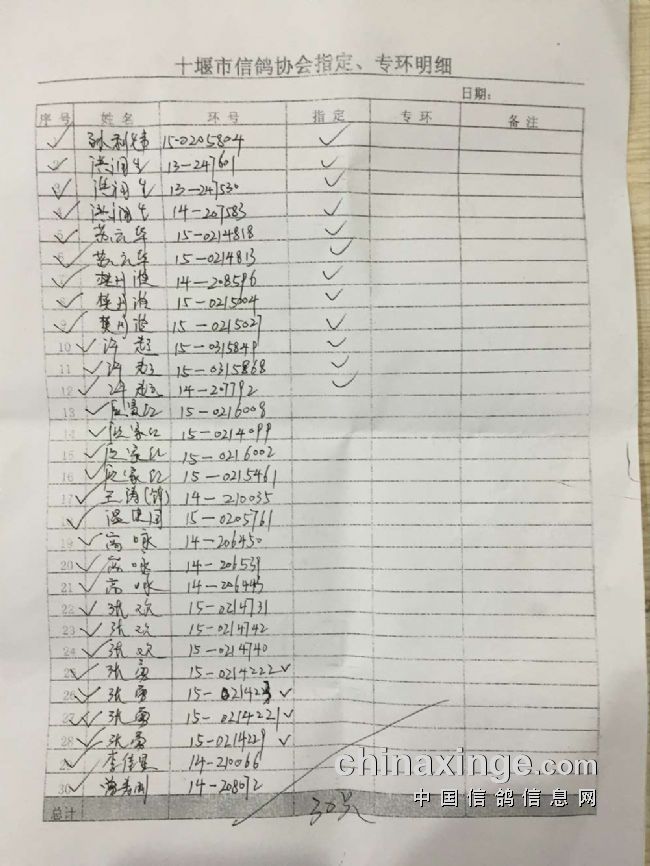 十堰市信鸽协会指定、专环明细
日期：
序号 姓名 环号 指定 专环 备注
15-0205804 ✓
13-247601 ✓
3 13-247530 ✓
4 14-207583 ✓
5 苏云华 15-0214818 ✓
6 苏云华 15-0214813 ✓
14-208596 ✓
15-0215004 ✓
9 15-0215027 ✓
10 许 15-0315849 ✓
11 许 15-0315868 ✓
12 许 14-207792 ✓
13 15-0216008
14 15-0214099
15 15-0216002
16 15-0215461
17 王涛 14-210035
温 15-0205761
19 高咏 14-206450
20 高咏 14-206539
21 高咏 14-206443
22 张欢 15-0214731
23 张欢 15-0214742
24 张欢 15-0214740
25 张勇 15-0214222 ✓
26 张勇 15- ✓
27 张勇 15-0214221 ✓
28 张勇 15-0214229 ✓
29 李佳 14-210066
30 14-208072
总计 30只
chinaxinge.com
中国信鸽信息网